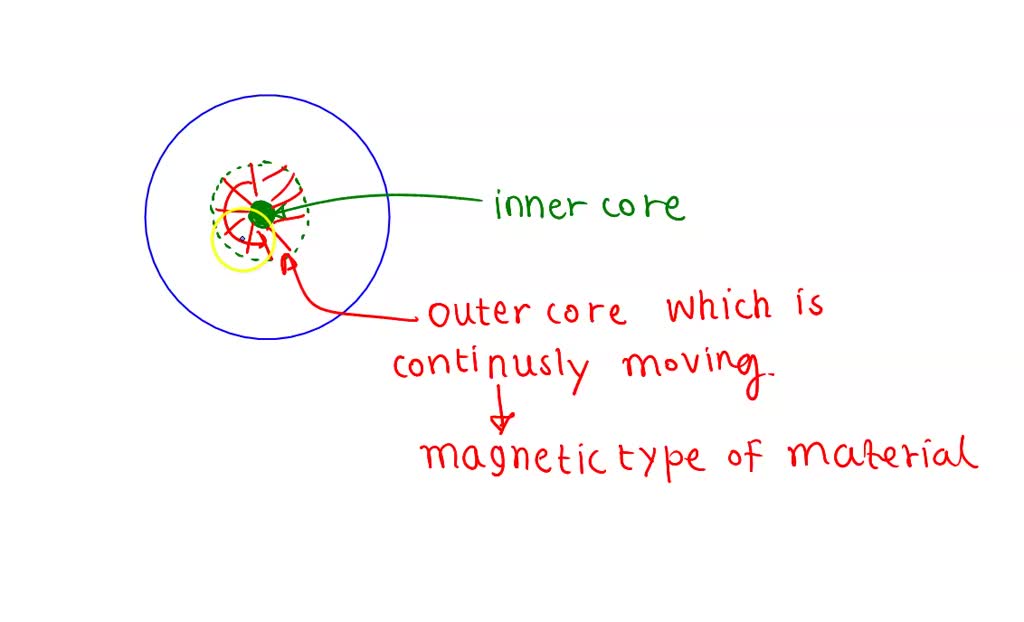 inner core
outer core which is
continusly moving.
magnetic type of material